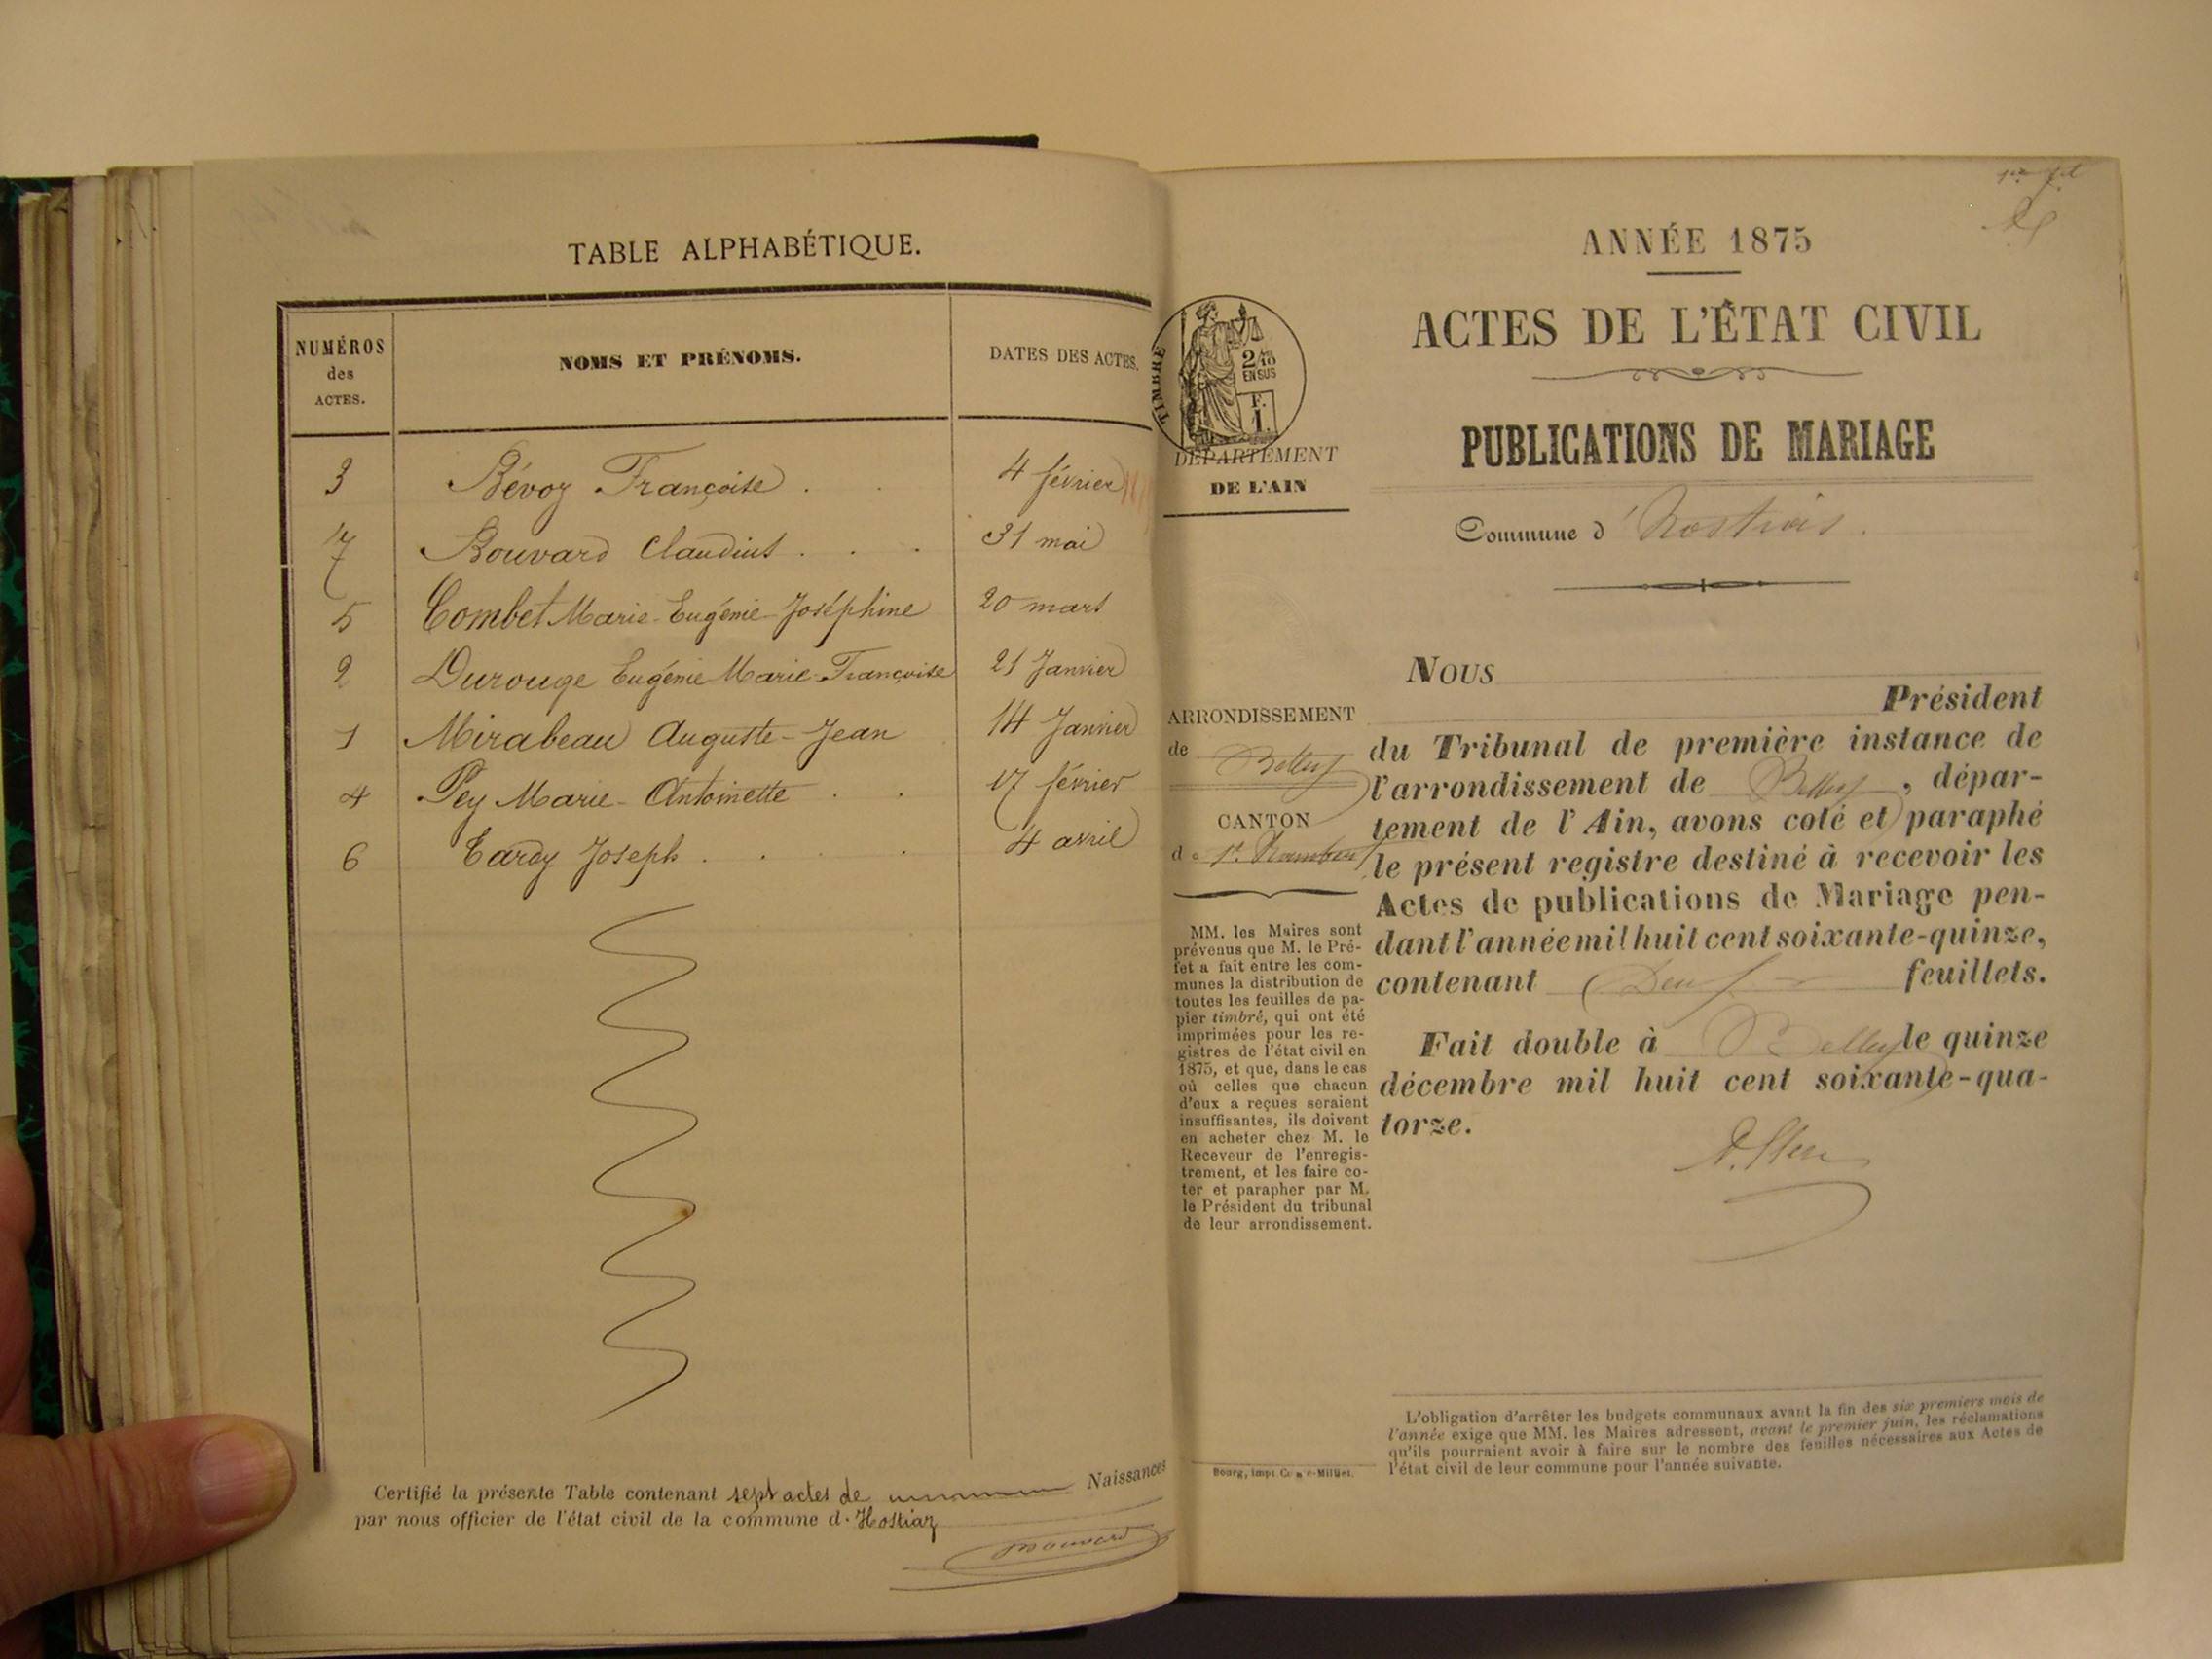 TABLE ALPHABÉTIQUE.
NUMÉROS
des
ACTES.
NOMS ET PRÉNOMS.
DATES DES ACTES.
3 Bévoz Françoise . . 4 février
7 Bouvard Claudius . . . 31 mai
5 Combet Marie-Eugénie-Joséphine 20 mars
2 Durouge Eugénie Marie-Françoise 21 Janvier
1 Mirabeau Auguste-Jean 14 Janvier
4 Pey Marie-Antoinette . . 17 février
6 Tardy Joseph . . . . 4 avril
Certifié la présente Table contenant sept actes de Naissances
par nous officier de l'état civil de la commune d. Hostiaz
Bouvard
ANNÉE 1875
ACTES DE L'ÉTAT CIVIL
PUBLICATIONS DE MARIAGE
Commune d'
TIMBRE
2/10
EN SUS
F.
1.
DÉPARTEMENT
DE L'AIN
ARRONDISSEMENT
de Belley
CANTON
de St. Rambert
MM. les Maires sont
prévenus que M. le Pré-
fet a fait entre les com-
munes la distribution de
toutes les feuilles de pa-
pier timbré, qui ont été
imprimées pour les re-
gistres de l'état civil en
1875, et que, dans le cas
où celles que chacun
d'eux a reçues seraient
insuffisantes, ils doivent
en acheter chez M. le
Receveur de l'enregis-
trement, et les faire co-
ter et parapher par M.
le Président du tribunal
de leur arrondissement.
NOUS
Président
du Tribunal de première instance de
l'arrondissement de Belley, dépar-
tement de l'Ain, avons coté et paraphé
le présent registre destiné à recevoir les
Actes de publications de Mariage pen-
dant l'année mil huit cent soixante-quinze,
contenant Deux feuillets.
Fait double à Belley le quinze
décembre mil huit cent soixante-qua-
torze.
L'obligation d'arrêter les budgets communaux avant la fin des six premiers mois de
l'année exige que MM. les Maires adressent, avant le premier juin, les réclamations
qu'ils pourraient avoir à faire sur le nombre des feuilles nécessaires aux Actes de
l'état civil de leur commune pour l'année suivante.
Bourg, impr.